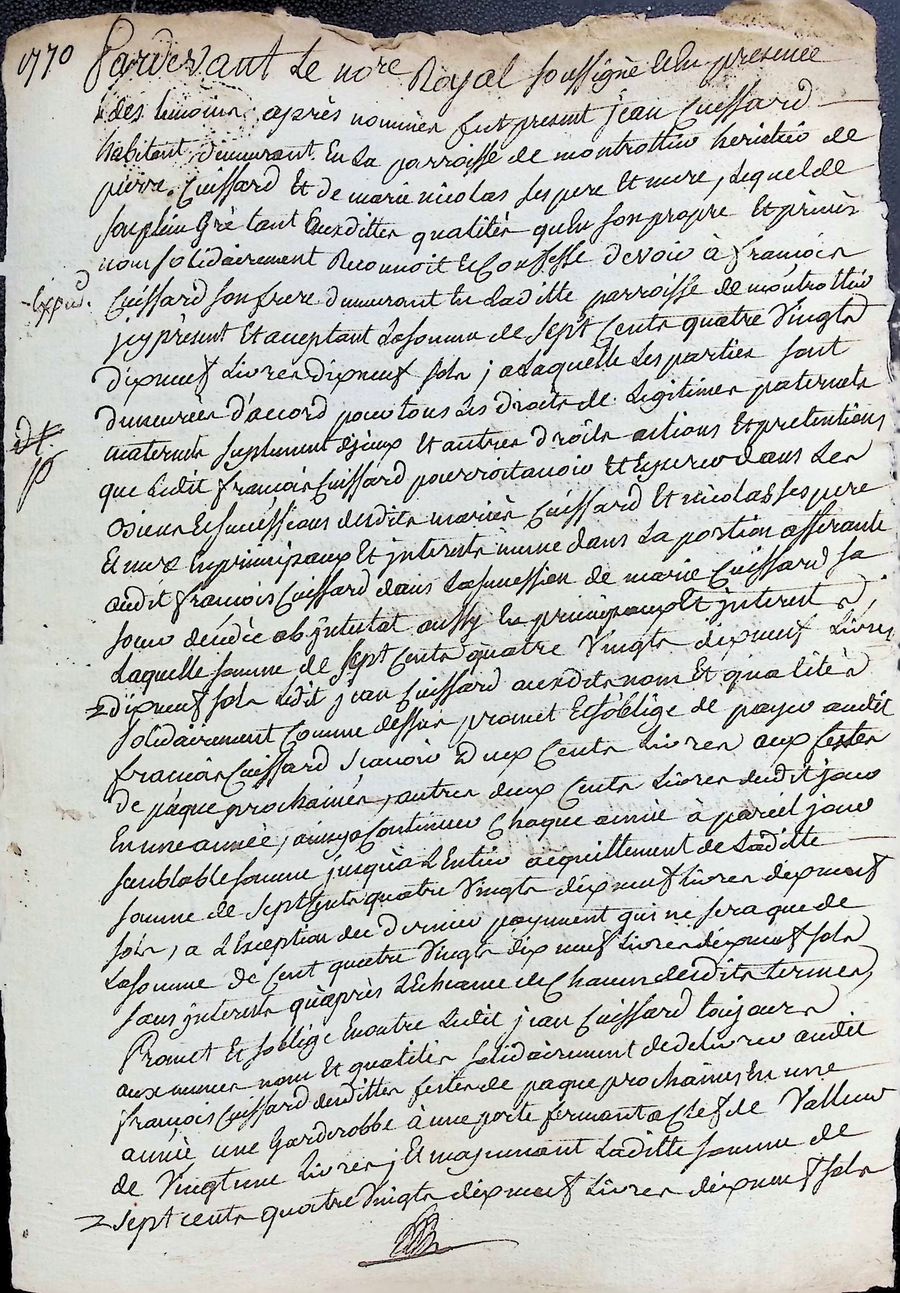 1770 Pardevant Le no.re Royal soussigné et En presence
des temoins apres nommés fut present jean Cuissard
habitant demeurant En La parroisse de montrottier heritier de
pierre Cuissard Et de marie nicolas ses pere Et mere, Lequel de
son plein gré tant Auxdittes qualités qu'En son propre Et privés
nom solidairement Reconnoit et Confesse devoir à françois
Cuissard son frere demeurant En Laditte parroisse de montrottier
jcy présent Et acceptant La somme de Sept Cents quatre Vingts
dixneuf Livres dixneuf sols ; a Laquelle Les parties sont
demeurées d'accord pour tous Les droits de Legitimes paternels
maternels suplement d'jceux Et autres droits actions Et pretentions
que Ledit françois Cuissard pourroit avoir Et Esperer dans Les
Biens Et successions desdits mariés Cuissard Et nicolas ses pere
Et mere En principaux Et jnterets meme dans La portion afferante
audit françois Cuissard dans La succession de marie Cuissard sa
soeur décédée ab jntestat aussy En principaux Et jnterets ;
Laquelle somme de sept Cents quatre Vingts dixneuf Livres
dixneuf sols Ledit jean Cuissard auxdits nom Et qualités
solidairement Comme dessus promet Et s'oblige de payer audit
françois Cuissard scavoir deux Cents Livres aux festes
de pâque prochaines, autres deux Cents Livres dudit jour
En une année, ainsy a Continuer Chaque année à pareil jour
semblable somme jusqu'à L'Entier acquittement de Laditte
somme de Sept Cents quatre Vingts dixneuf Livres dixneuf
sols, a L'Exception du dernier payement qui ne sera que de
La somme de Cent quatre Vingts dix neuf Livres dixneuf sols
sans jnterets qu'après L'Echeance de Chacun desdits termes
Promet Et s'oblige En outre Ledit jean Cuissard toujours
aux memes nom Et qualités solidairement de delivrer audit
françois Cuissard desdittes festes de paque prochaines En une
année une Garderobbe à une porte fermant a Clef de Valleur
de Vingt une Livres ; Et moyennant Laditte somme de
Sept cents quatre Vingts dixneuf Livres dixneuf sols
Exped.